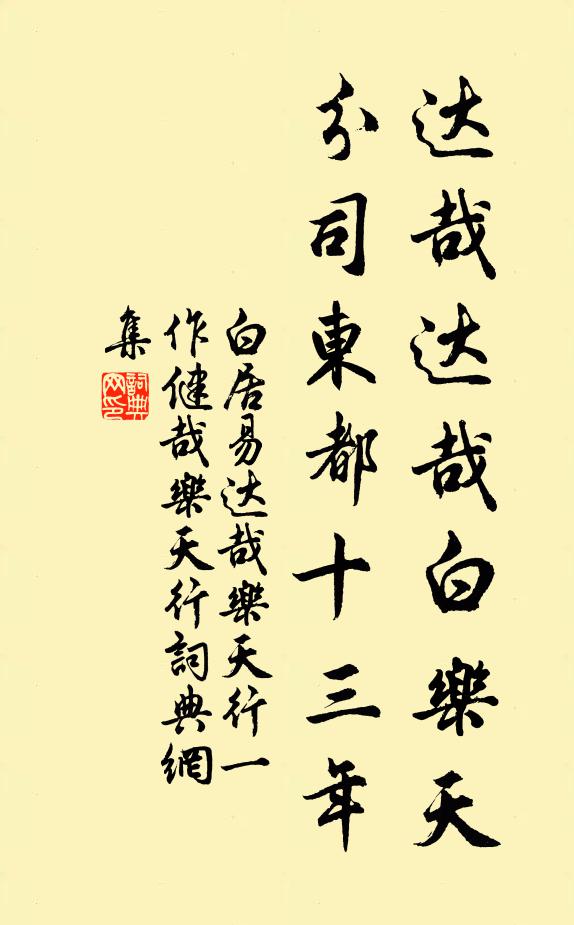 达哉达哉白樂天
分司東都十三年
白居易达哉樂天行一
作健哉樂天行詞典網
集
詞典
网印